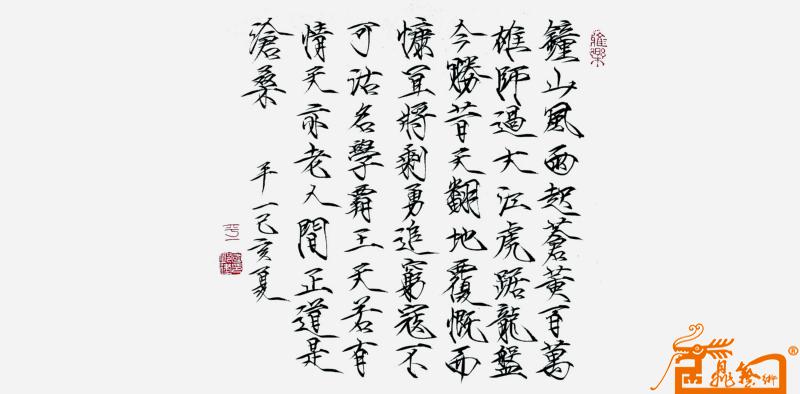 鐘山風雨起蒼黃百萬
雄師過大江虎踞龍盤
今勝昔天翻地覆慨而
慷宜將剩勇追窮寇不
可沽名學霸王天若有
情天亦老人間正道是
滄桑
平一己亥夏
平一